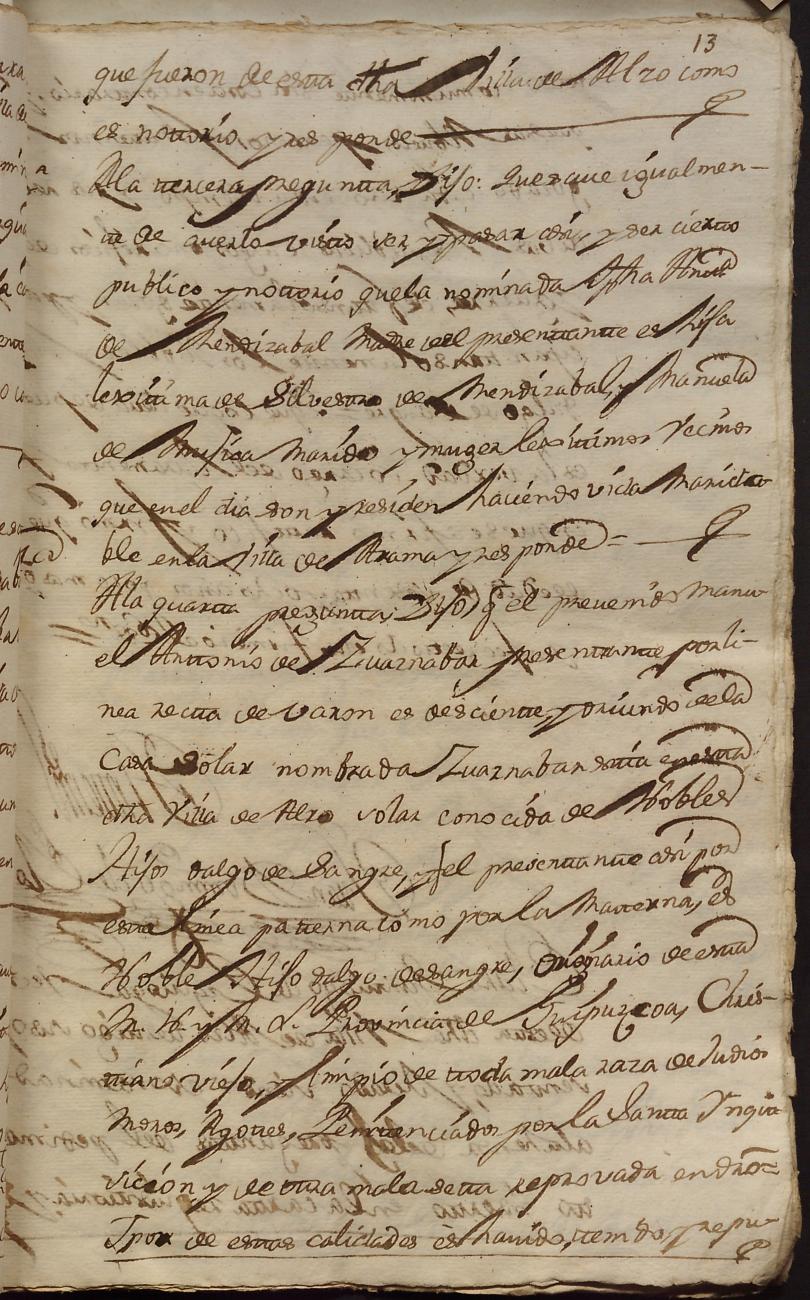 13
que fueron de esta dha Villa de Alzo como
es nottorio y responde
A la tercera pregunta, Dijo: que save igualmen-
te de averlo visto ser y pasar asi, y ser cierto
publico y nottorio que la nominada
de Mendizabal Madre del presentante es hija
lexitima de Silvestre de Mendizabal, y Manuela
de Mujica Marido y muger lexitimos Vecinos
que en el dia son y residen haciendo vida Marida-
ble en la Villa de Arama y responde =
A la quarta pregunta, Dijo, q el prevenido Manu-
el Antonio de Zuarnabar presentante por li-
nea recta de varon es desciente, y oriundo de la
Casa solar nombrada Zuarnabar sita en esta
dha Villa de Alzo solar conocida de Nobles
Hijos dalgo de sangre, y el presentante asi por
esta linea patterna como por la Materna, es
Noble Hijo dalgo de sangre, Originario de esta
M. N. y M. L. Provincia de Guipuzcoa, Chris-
tiano viejo, y limpio de toda mala raza de Judios
Moros, Agotes, Penitenciados por la Santa Ynqui-
sicion y de otra mala secta reprovada en dro=
Ypor de estas calidades es havido, tenido, y repu-